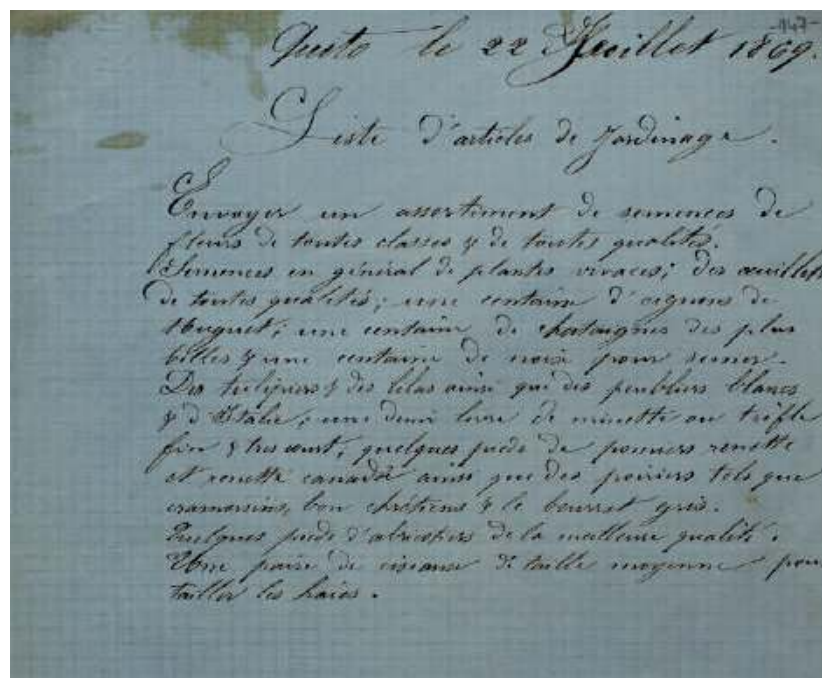 -147-
Quito le 22 Juillet 1869.
Liste d'articles de Jardinage.
Envoyer un assortiment de semences de
fleurs de toutes classes & de toutes qualités.
Semences en général de plantes vivaces; des œuillets
de toutes qualités; une centaine d'oignons de
Muguet; une centaine de chataignes des plus
belles & une centaine de noix pour semer.
Des tulipiers & des lilas ainsi que des peupliers blancs
& d'Italie; une demi livre de minette ou trèfle
fin & très court; quelques pieds de pommiers renette
et renette canada ainsi que des poiriers tels que
cramoisins, bon chrétiens & le beurret gris.
Quelques pieds d'abricotiers de la meilleure qualité.
Une paire de ciseaux de taille moyenne pour
tailler les haies.